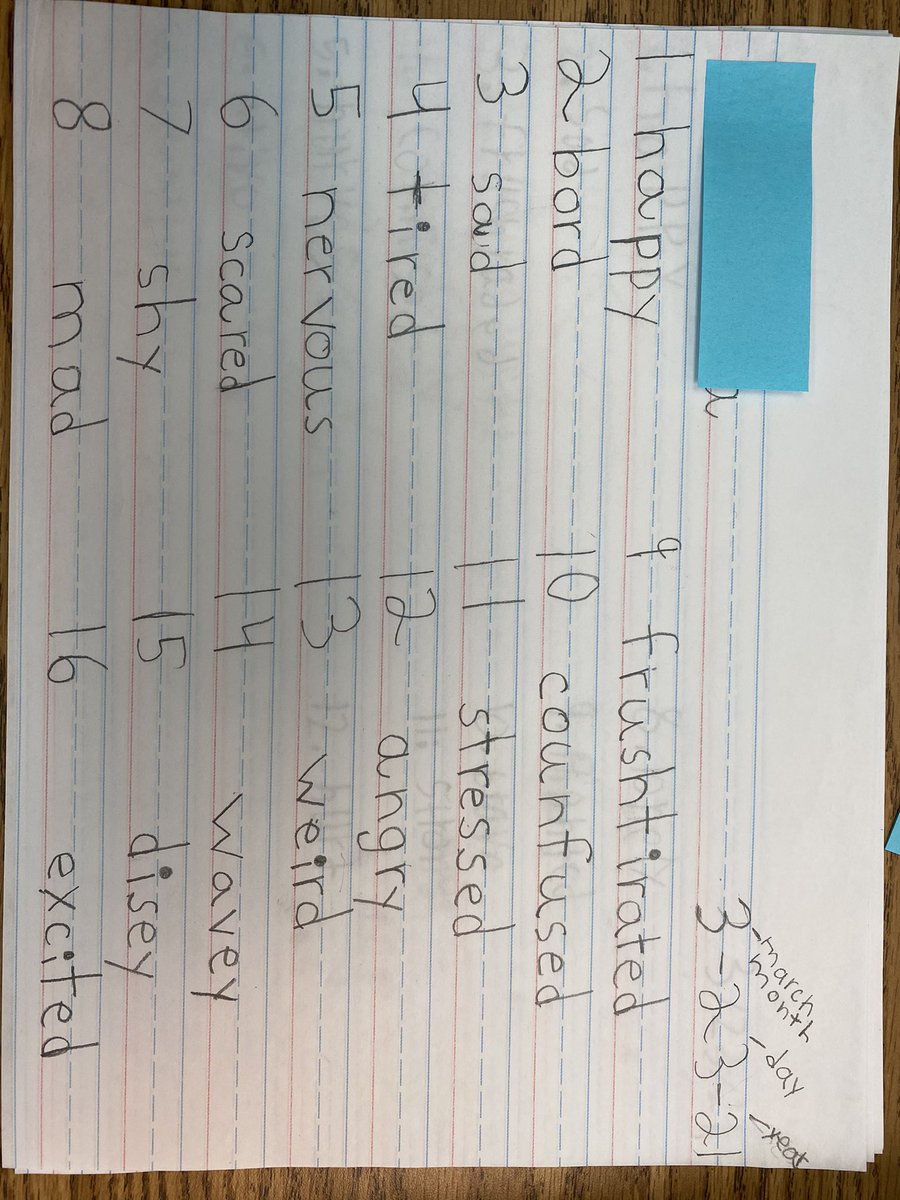 march
month day
a 3-23-21
1 happy 9 frushtirated
2 bord 10 counfused
3 sad 11 stressed
4 tired 12 angry
5 nervous 13 weird
6 scared 14 wavey
7 shy 15 disey
8 mad 16 excited